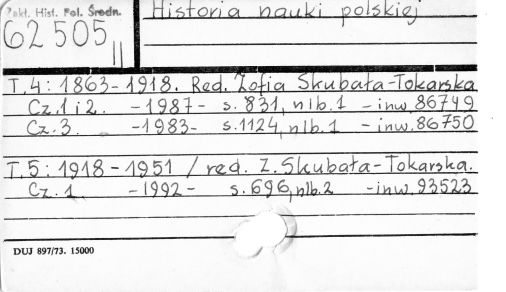 Zakł. Hist. Pol. Średn.
62 505 II
Historia nauki polskiej
T. 4 : 1863-1918. Red. Zofia Skubała-Tokarska
Cz. 1 i 2. - 1987 - s. 831, nlb. 1 - inw. 86749
Cz. 3. - 1983 - s. 1124, nlb. 1 - inw. 86750
T. 5 : 1918-1951 / red. Z. Skubała-Tokarska.
Cz. 1 - 1992 - s. 696, nlb. 2 - inw. 93523
DUJ 897/73. 15000